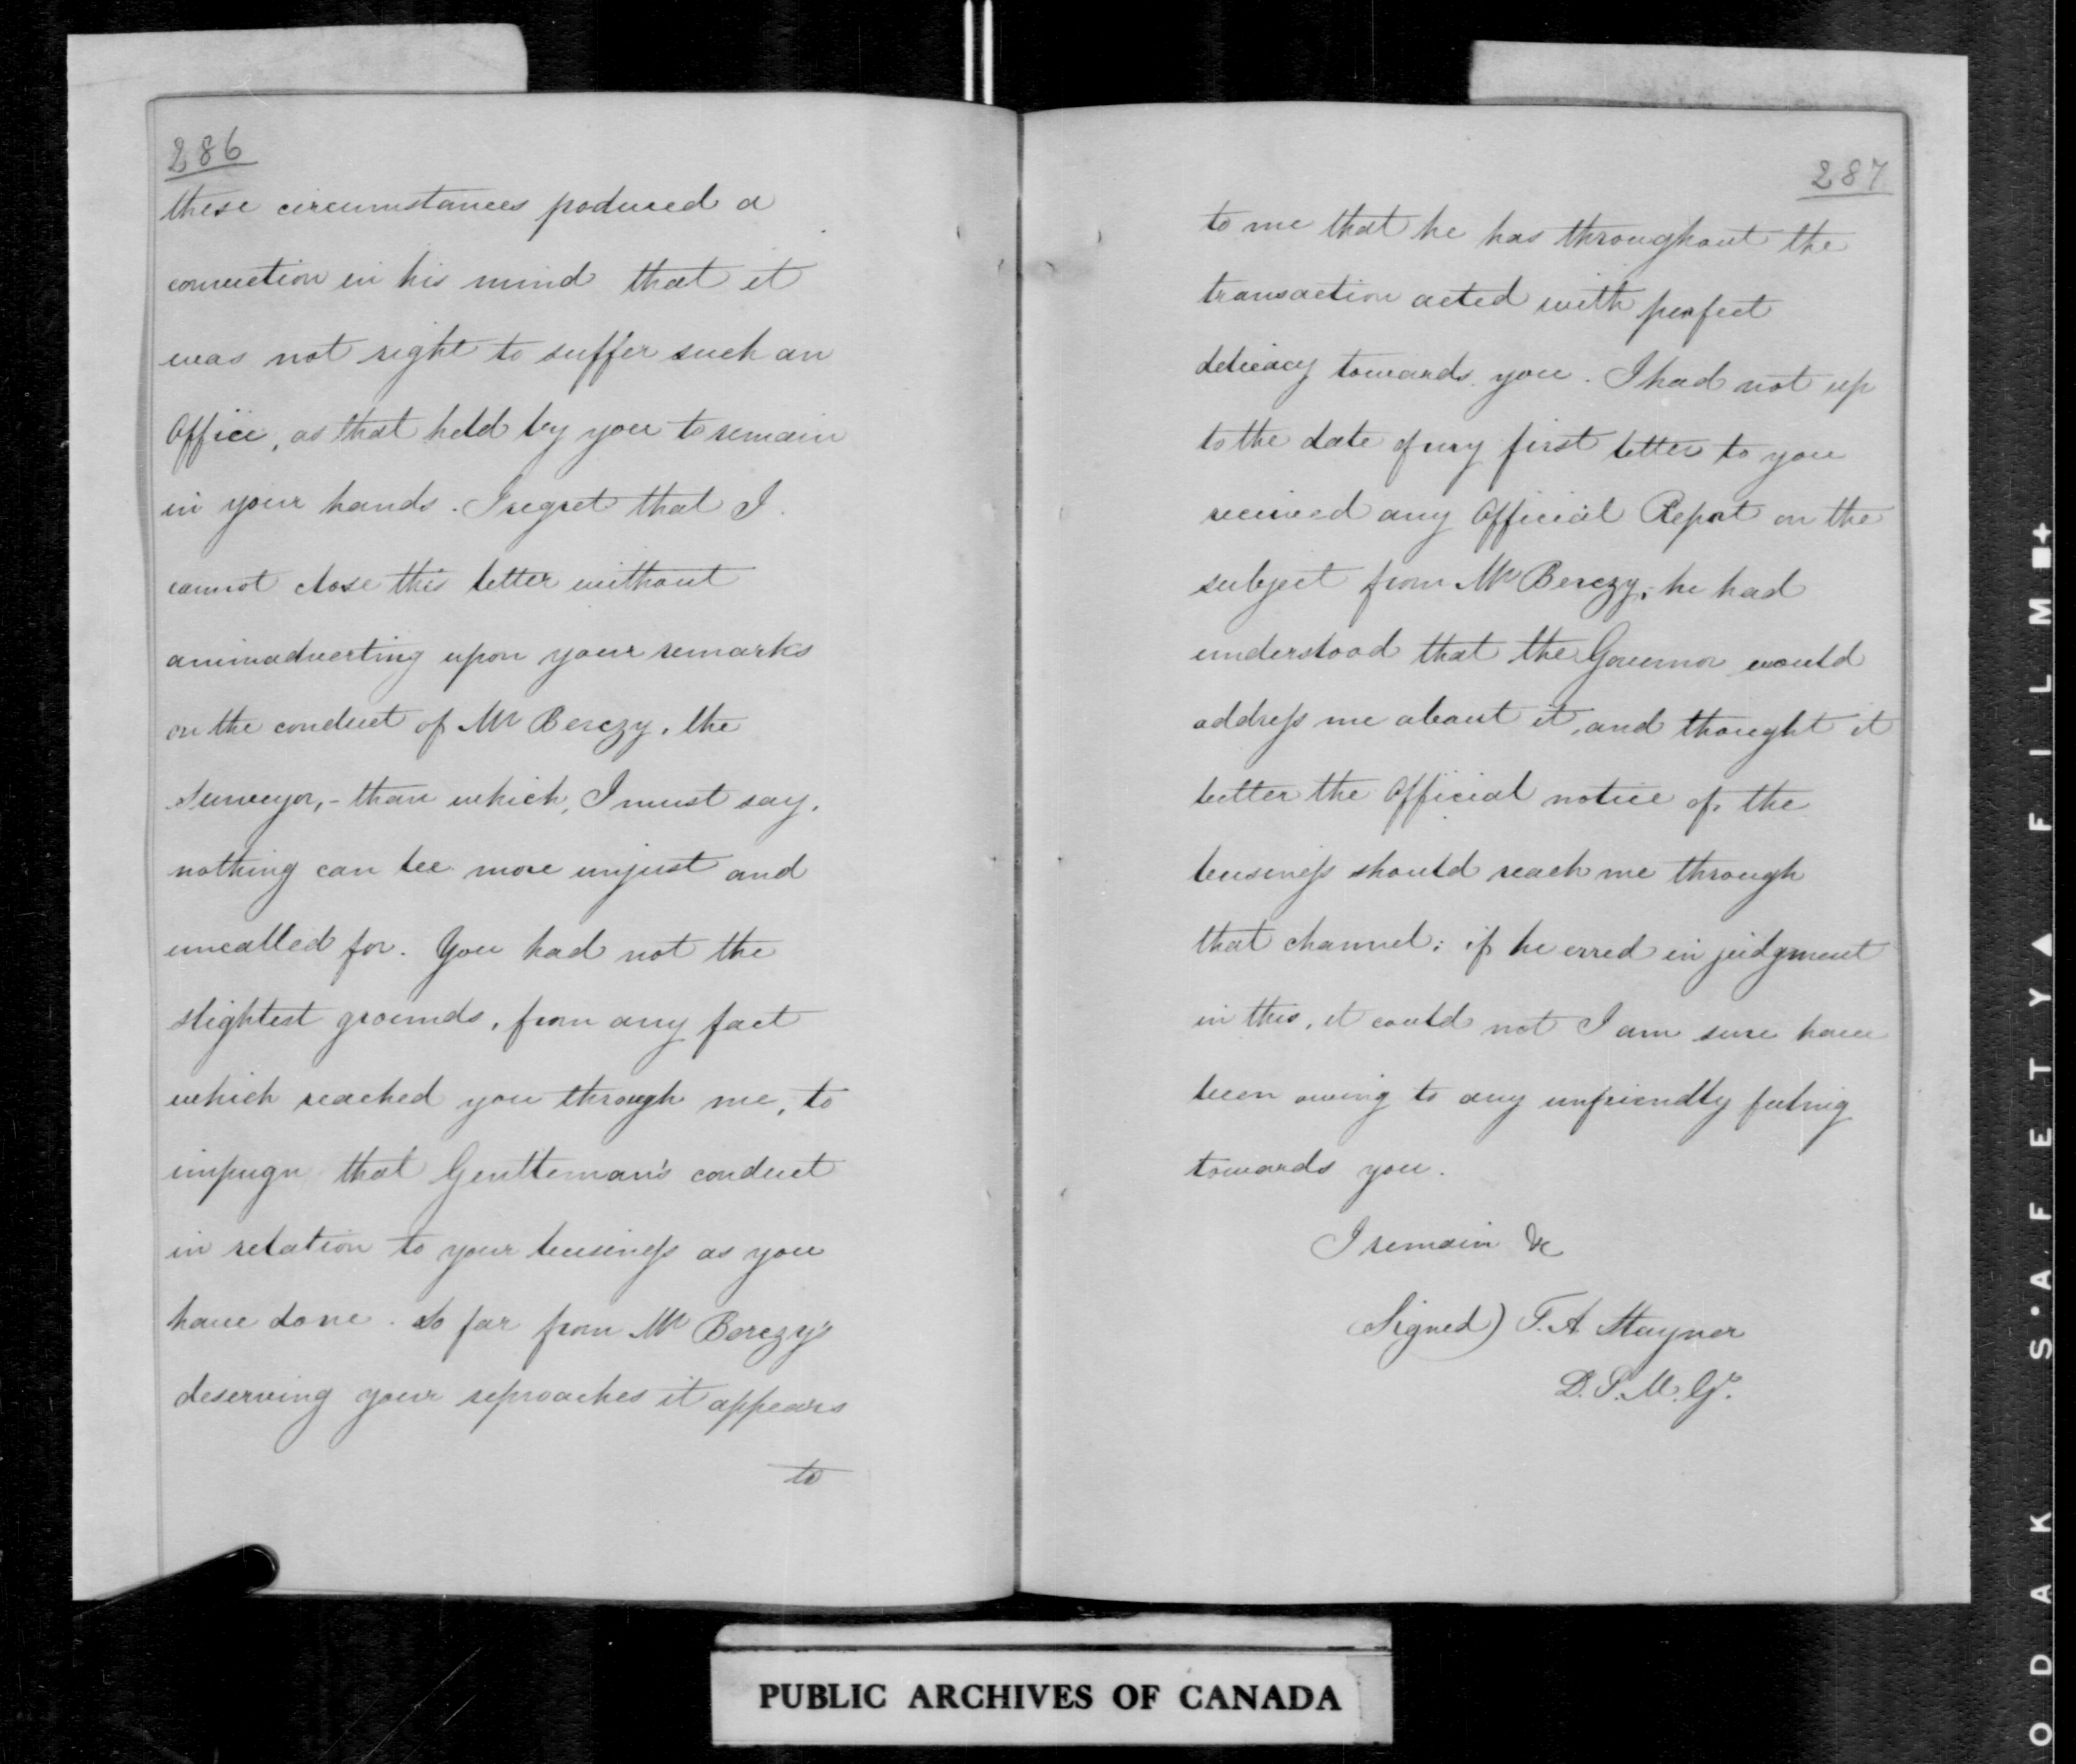 286
these circumstances poduced a
conviction in his mind that it
was not right to suffer such an
Office, as that held by you to remain
in your hands. I regret that I
cannot close this letter without
animadverting upon your remarks
on the conduct of Mr Berczy, the
Surveyor, - than which, I must say,
nothing can be more unjust and
uncalled for. You had not the
slightest grounds, from any fact
which reached you through me, to
impugn that Gentleman's conduct
in relation to your business as you
have done. So far from Mr Berczy's
deserving your reproaches it appears
to
287
to me that he has throughout the
transaction acted with perfect
delicacy towards you. I had not up
to the date of my first letter to you
received any Official Report on the
subject from Mr Berczy; he had
understood that the Governor would
address me about it, and thought it
better the Official notice of the
business should reach me through
that channel; if he erred in judgment
in this, it could not I am sure have
been owing to any unfriendly feeling
towards you.
I remain &c
(Signed) T. A. Stayner
D. P. M. Gl.
PUBLIC ARCHIVES OF CANADA
ODAK S'AFETY▲FILM■+